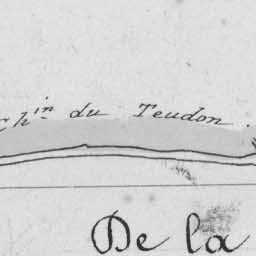 Chin du Teudon.
De la